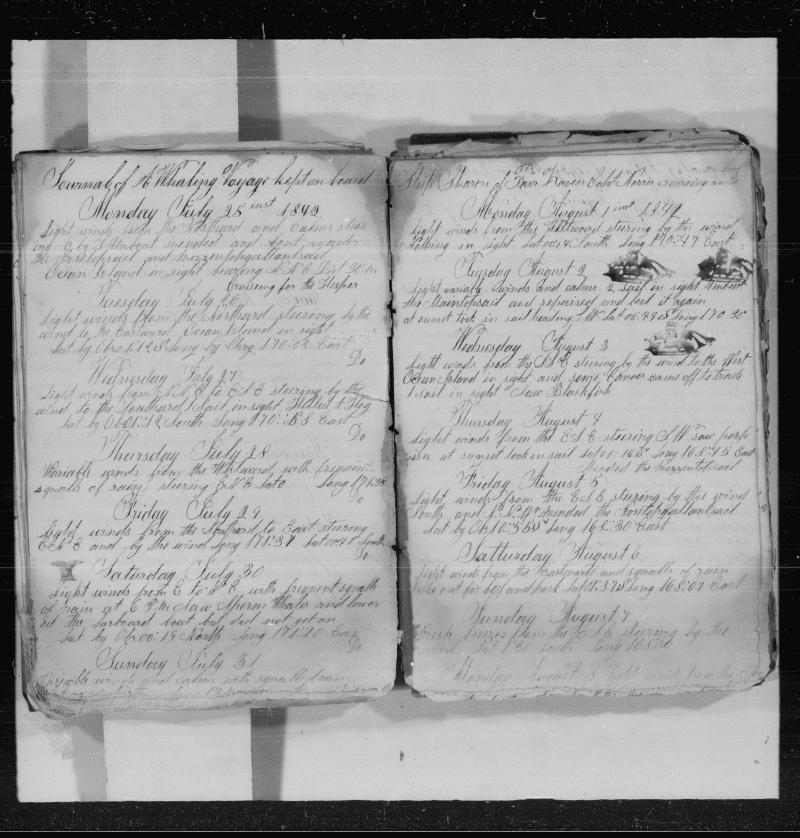 Journal of A Whaling Voyage kept on board
Monday July 25 inst 1842
Light winds from the Northard and Calms steer
ing E by S unbent mended and bent again
the foretopsail and mizzentopgallantsail
Ocean Island in sight bearing N N E Dist 30 m
Cruising for the Hesper
Tuesday July 26
Light winds from the Northard steering by the
wind to the Eastward Ocean Island in sight
Lat by Ob 01:12 S Long by Chr 170:02 East
Do
Wednesday July 27
Light winds from E N E to E S E steering by the
wind to the Southard Sail in sight Killed A Hog
Lat by Ob 01:12 South Long 170:58 East
Do
Thursday July 28
Variable winds from the Westward with frequent
squals of rain steering E N E Lat 0 Long 171:35
Do
Friday July 29
Light winds from the Southard to East steering
E N E and by the wind Long 171:31 Lat 00:41 South
Do
Saturday July 30
Light winds from E to S E with frequent squalls
of rain at 6 P M Saw Sperm Whales and lower
ed the larboard boat but did not get on
Lat by Ob 00:19 North Long 171:10 East
Do
Sunday July 31
Variable winds and calms with squalls of rain
Ship Sharon of Fair Haven Capt Norris cruising
Monday August 1 inst 1842
Light winds from the Westward steering by the wind
Nothing in sight Lat 00: South Long 170:47 East
Tuesday August 2
Light variable winds and calms 2 Sail in sight Unbent
the Maintopsail and repaired and bent it again
at sunset took in sail heading S W Lat 00:49 S Long 170 30
Wednesday August 3
Light winds from the S S E steering by the wind to the West
Ocean Island in sight and some Canoes came off to trade
1 sail in sight Saw Blackfish
Thursday August 4
Light winds from the E S E steering S W Saw porp
oises at sunset took in sail Lat 01:16 S Long 168:45 East
Mended the mizzentopsail
Friday August 5
Light winds from the E S E steering by the wind
South and N mended the foretopgallantsail
Lat by Ob 10:55 S Long 168:30 East
Saturday August 6
Light winds from the Eastward and squalls of rain
Lat 1:37 S Long 168:07 East
Sunday August 7
Fresh breezes from the E S E steering by the
wind Lat South Long
Monday August 8 light winds from the